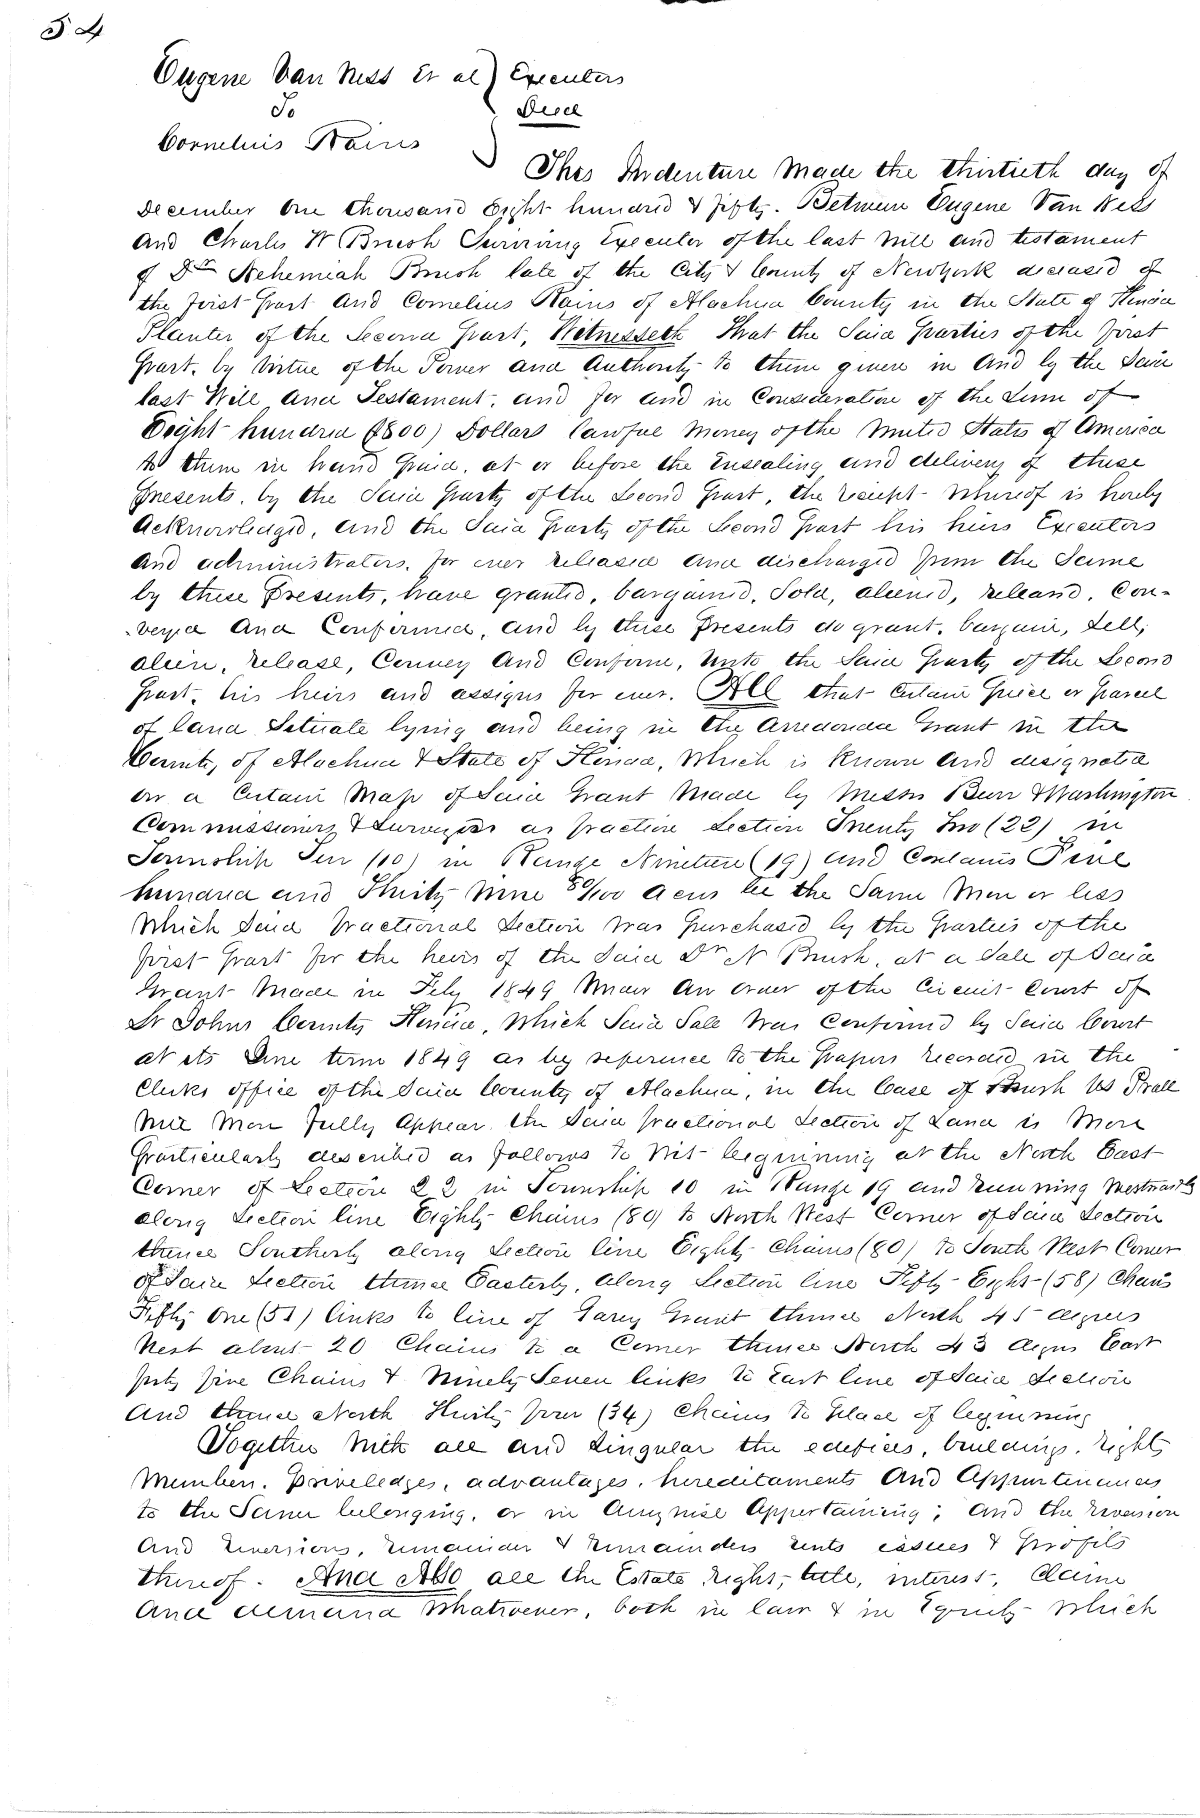 54
Eugene Van Ness Et al } Executors
To Deed
Cornelius Rains
This Indenture Made the thirtieth day of
December One thousand Eight hundred & fifty. Between Eugene Van Ness
And Charles W Brush Surviving Executor of the last will and testament
of Dr Nehemiah Brush late of the City & County of New York deceased of
the first Part And Cornelius Rains of Alachua County in the State of Florida
Planter of the Second Part, Witnesseth That the Said Parties of the first
Part, by Virtue of the Power and Authority to them given in And by the Said
last Will and Testament, and for and in Consideration of the Sum of
Eight hundred (800) Dollars lawful Money of the United States of America
to them in hand Paid, at or before the Ensealing and delivery of these
Presents, by the Said Party of the Second Part, the receipt whereof is hereby
Acknowledged, and the Said Party of the Second Part his heirs Executors
And administrators, for ever released and discharged from the Same
by these Presents, have granted, bargained, Sold, aliened, released, Con-
-veyed And Confirmed, and by these Presents do grant, bargain, Sell,
alien, release, Convey And Confirm, Unto the Said Party of the Second
Part, his heirs and assigns for ever. All that Certain Piece or Parcel
of land Situate lying and being in the Arredondo Grant in the
County of Alachua & State of Florida, Which is Known And designated
on a Certain Map of Said Grant Made by Messrs Burr & Washington
Commissioners & Surveyors as fraction Section Twenty two (22) in
Township Ten (10) in Range Nineteen (19) and Contains Five
hundred and Thirty Nine 80/100 Acres be the Same More or less
Which Said fractional Section was Purchased by the Parties of the
first Part for the heirs of the Said Dr N Brush, at a Sale of Said
Grant Made in Feby 1849 Under An order of the Circuit Court of
St Johns County Florida, Which Said Sale Was Confirmed by Said Court
at its June term 1849 as by reference to the Papers recorded in the
Clerks office of the Said County of Alachua, in the Case of Brush vs Prall
Will More fully Appear. the Said fractional Section of Land is More
Particularly described as follows to Wit beginning at the North East
Corner of Section 22 in Township 10 in Range 19 and running Westwardly
along Section line Eighty Chains (80) to North West Corner of Said Section
thence Southerly along Section line Eighty Chains (80) to South West Corner
of Said Section thence Easterly, along Section line Fifty Eight (58) Chains
Fifty One (51) links to line of Garey Grant thence North 45 degrees
West about 20 Chains to a Corner thence North 43 degrees East
forty five Chains & Ninety Seven links to East line of Said Section
And thence North Thirty four (34) Chains to Place of beginning
Together With all and Singular the edefices, buildings, rights
Members, Priveledges, advantages, hereditaments And Appurtinances
to the Same belonging, or in Anywise Appertaining; and the reversion
And reversions, remainder & remainders rents issues & Profits
thereof. And Also all the Estate right, title, interest, Claim
And demand Whatsoever, both in law & in Equity Which